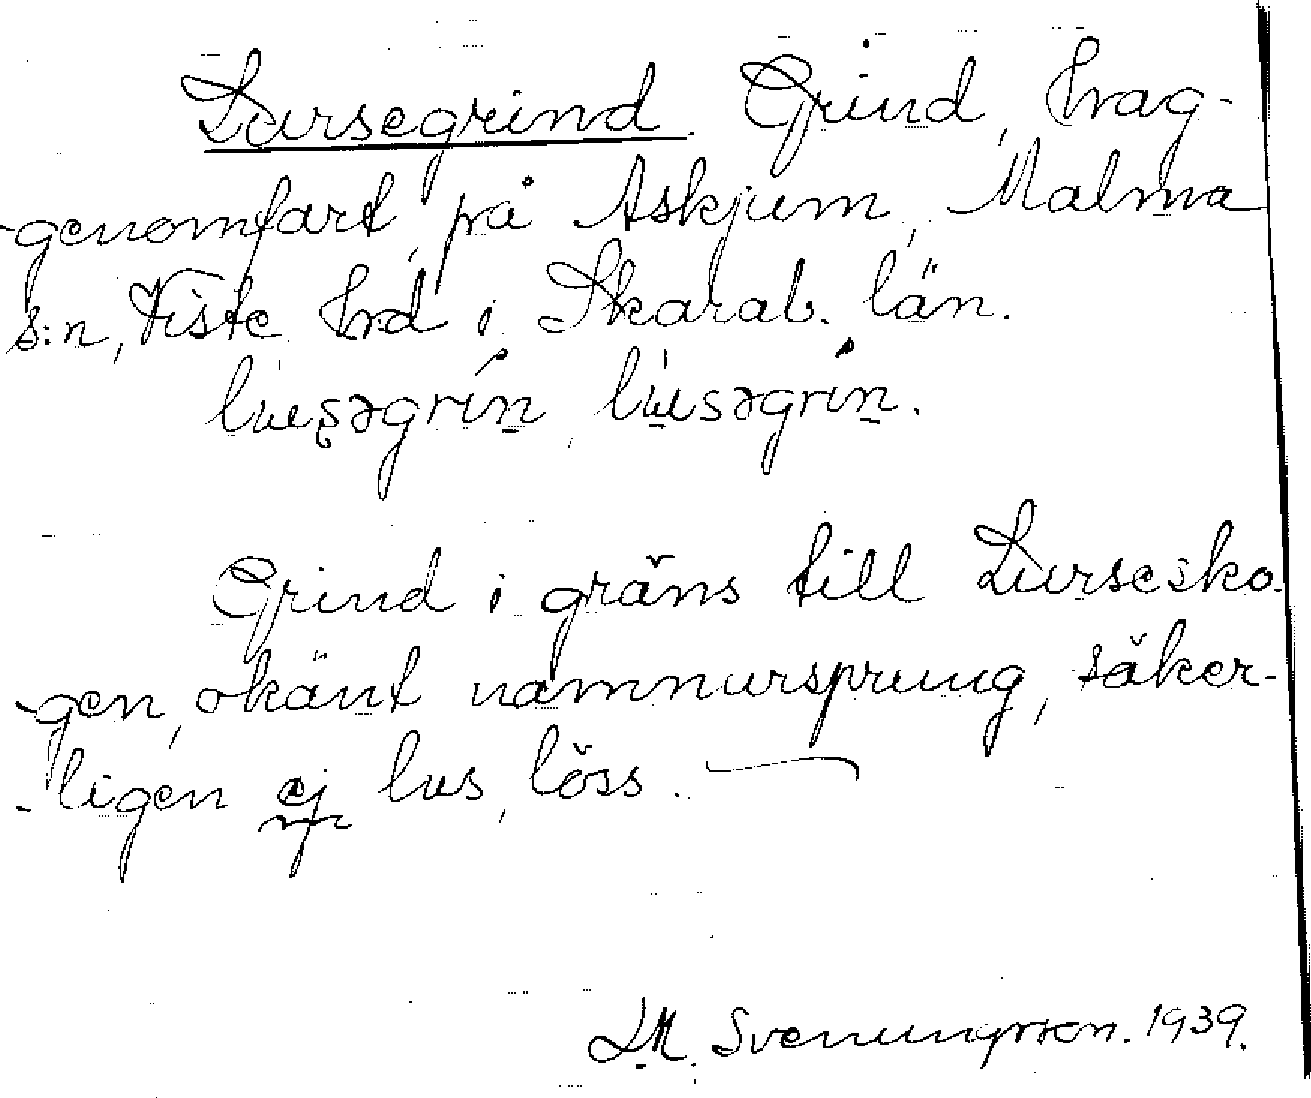 Lursegrind. Grind, hrag-
-genomfart, på Askjum, Malma
s:n, Viste hrd i Skarab. län.
lusəgrin, lusəgrin.
Grind i gräns till Lursesko-
-gen, okänt namnursprung, säker-
-ligen ej lus, löss.
LM. Svenungsson. 1939.